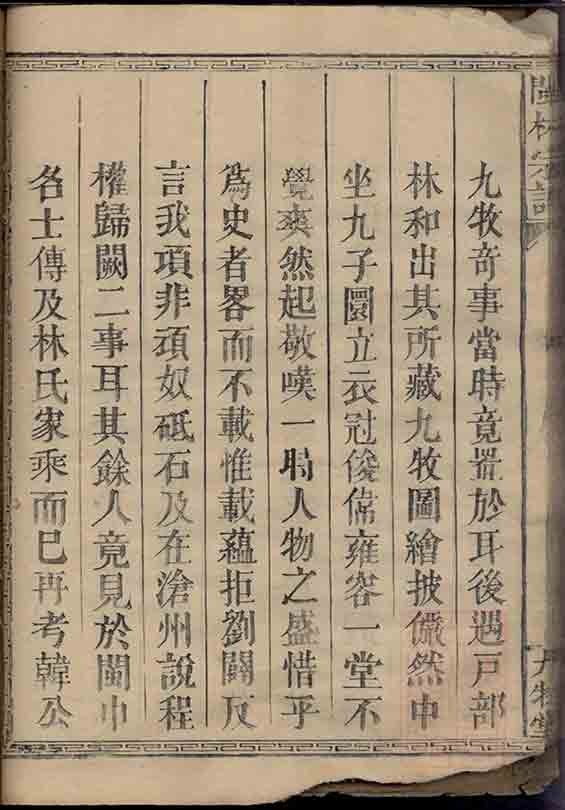 閩林宗譜
九牧堂
九牧奇事當時竟置於耳後遇戸部
林和出其所藏九牧圖繪披儼然中
坐九子圜立衣冠俊偉雍容一堂不
覺爽然起敬嘆一時人物之盛惜乎
爲史者畧而不載惟載蘊拒劉闢反
言我項非頑奴砥石及在滄州說程
權歸闕二事耳其餘人竟見於閩中
名士傳及林氏家乘而已再考韓公